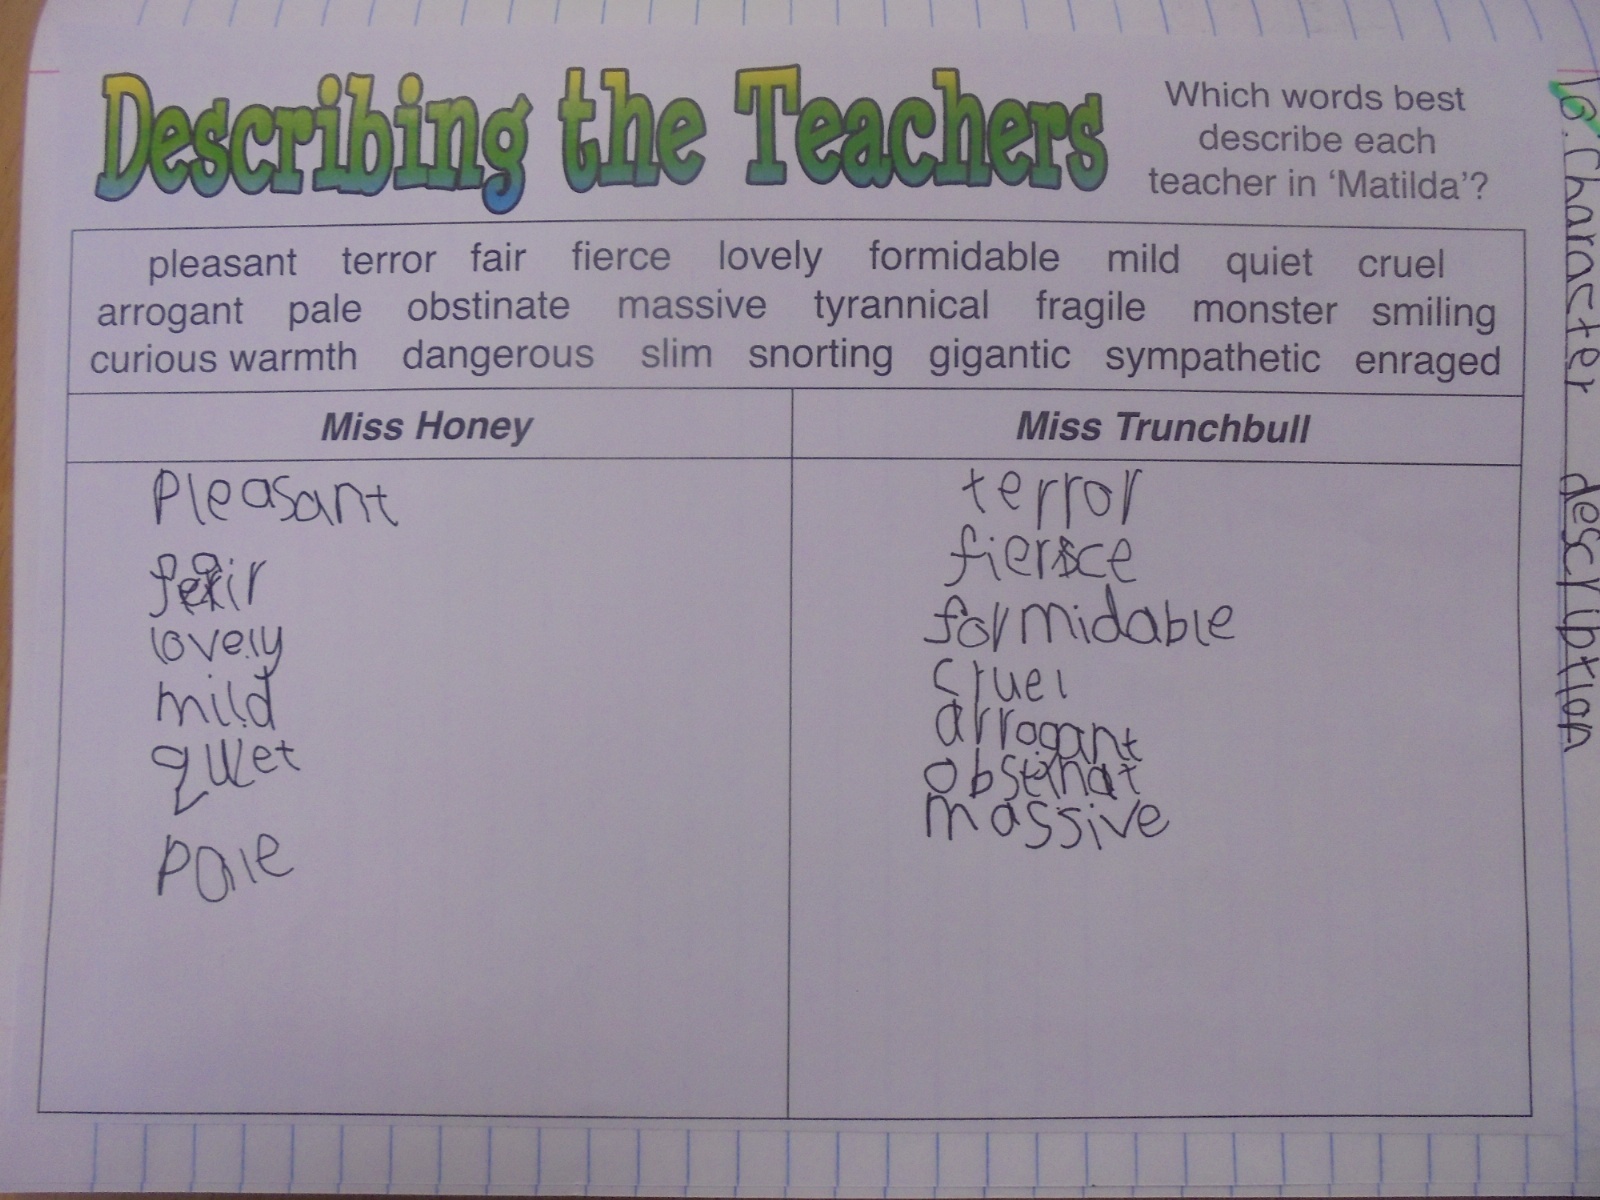 Describing the Teachers
Which words best
describe each
teacher in ‘Matilda’?
pleasant terror fair fierce lovely formidable mild quiet cruel
arrogant pale obstinate massive tyrannical fragile monster smiling
curious warmth dangerous slim snorting gigantic sympathetic enraged
Miss Honey
Miss Trunchbull
Pleasant
fair
lovely
mild
quiet
pale
terror
fierce
formidable
cruel
arrogant
obstinat
massive
Lo. Character description